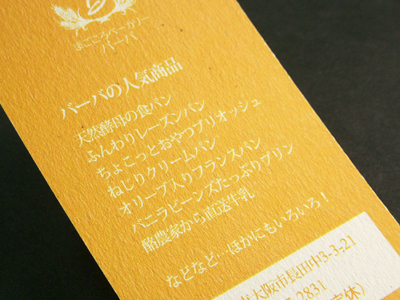 まごころベーカリー
バーバ
バーバの人気商品
天然酵母の食パン
ふんわりレーズンパン
ちょこっとおやつブリオッシュ
ねじりクリームパン
オリーブ入りフランスパン
バニラビーンズたっぷりプリン
酪農家から直送牛乳
などなど…ほかにもいろいろ！
東大阪市長田中3-3-21
2831
定休）